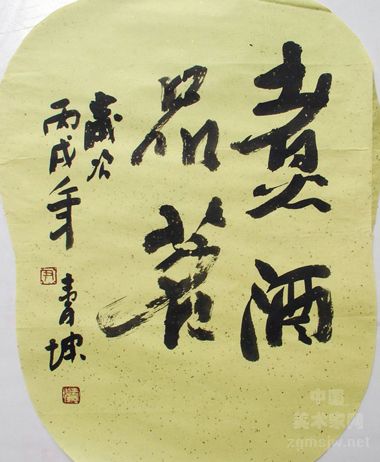 煮酒
品茗
歲次
丙戌年
青坤
中国
美术家网
zgmsjw.net